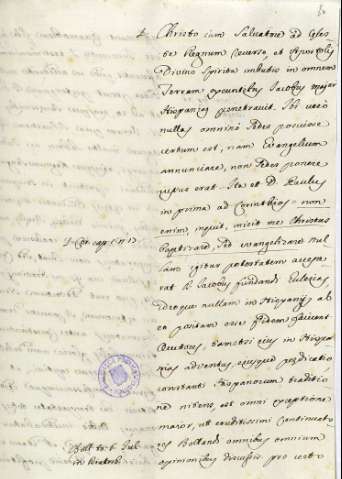 Christo iam Salvatore ad Glo=
suæ Regnum reverso, et Apostolis
Divino Spiritu imbutis in omnem
Terram exeuntibus Jacobus major
Hispaniam penetravit. Ibi vero
nullas omnino sedes posuisse
certum est, nam Evangelium
annunciare, non sedes ponere
jussus erat. Ita et D. Paulus
in prima ad Corinthios = non
enim, inquit, misit me Christus
1. Cor. cap. 1. n. 17
baptizare, sed evangelizare nul
lam igitur potestatem accepe
rat B. Jacobus fundandi Ecclesias,
ideoque nullam in Hispanijs ab
eo
tametsi ejus in Hispa
nias adventus, ejusque prædicatio
constanti Hispanorum traditio
ne nitens, est omni exceptione
major, ut eruditissimi Continuato
res Bollandi omnibus omnium
Boll. to. 6 Jul.
opinionibus discussis pro certo